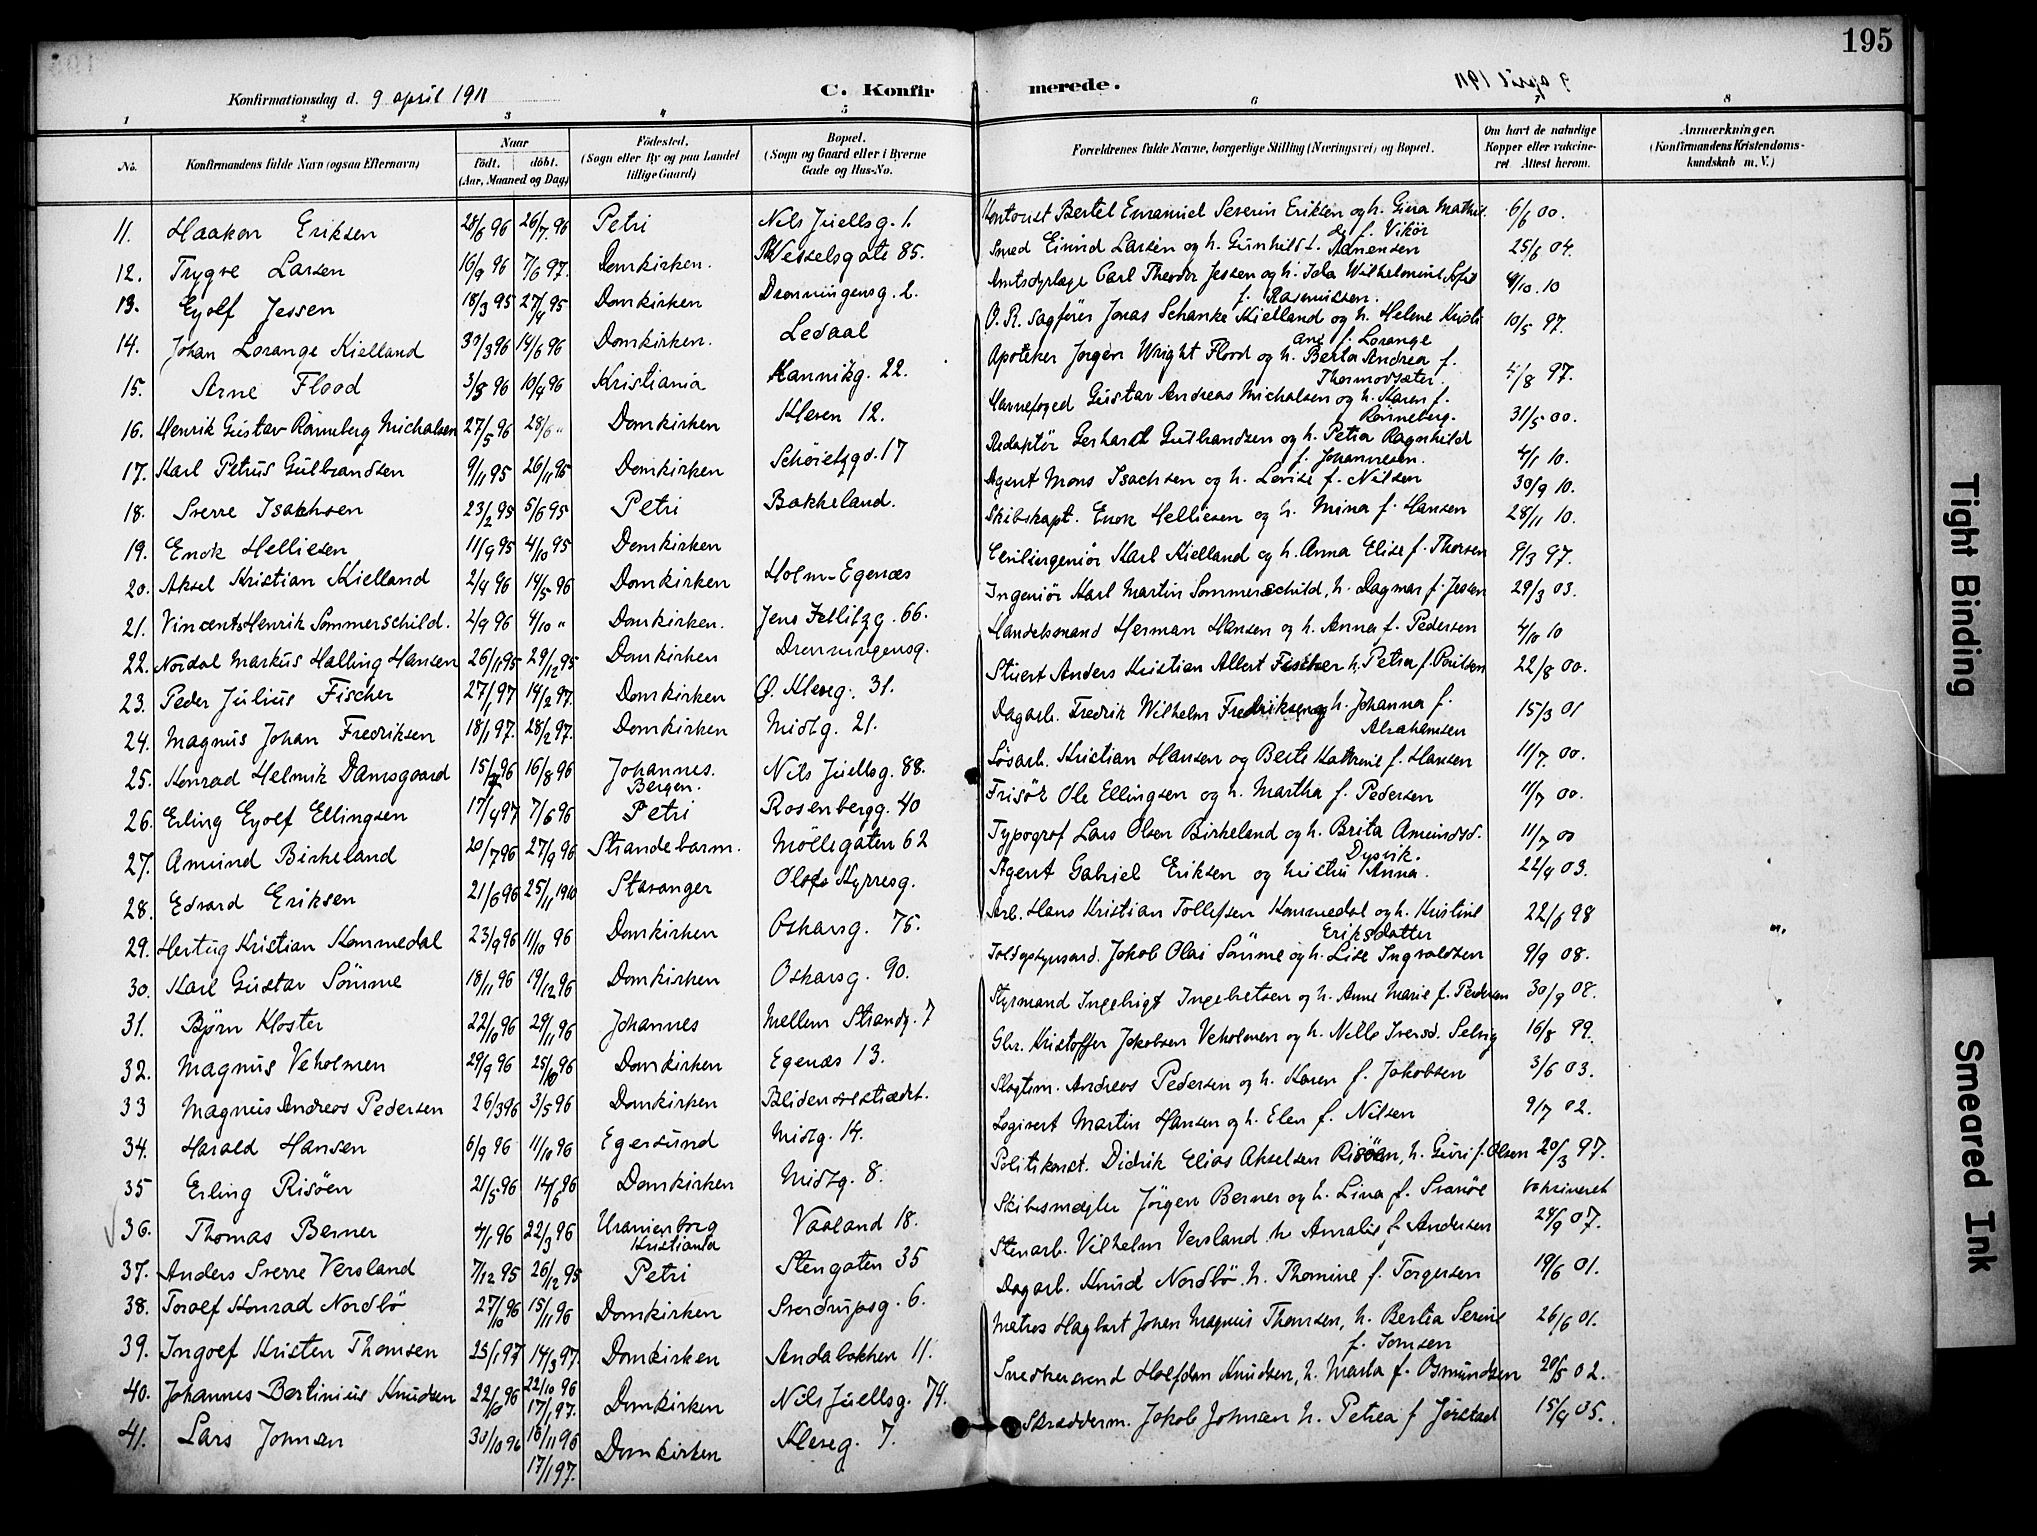 195
Konfirmationsdag d. 9 april 1911
C. Konfirmerede.
1 2 3 4 5 6 7 8
No.
Konfirmandens fulde Navn (ogsaa Efternavn)
Naar
födt. döbt.
(Aar, Maaned og Dag)
Födested.
(Sogn eller By og paa Landet
tillige Gaard)
Bopæl.
(Sogn og Gaard eller i Byerne
Gade og Hus-No.
Forældrenes fulde Navne, borgerlige Stilling (Næringsvei) og Bopæl.
Om havt de naturlige
Kopper eller vakcine-
ret Attest herom.
Anmærkninger.
(Konfirmandens Kristendoms-
kundskab m. V.)
11. Haakon Eriksen 28/6 96 26/7 96 Petri Nils Juellsg. 1. Bertel Emanuel Severin Eriksen og h. Gina Mathil 6/6 00.
de f. Vikör
12. Trygve Larsen 16/9 96 7/6 97. Domkirken. Wesselsgate 85. Smed Eivind Larsen og h. Gunhild f. 25/6 04.
13. Eyolf Jessen 18/3 95 27/4 95 Domkirken Dronningensg. 2. Amtsdyrlæge Carl Theodor Jessen og h. Ida Wilhelmine Sofie 4/10. 10
f. Rasmussen.
14. Johan Lorange Kielland 30/3 96 14/6 96 Domkirken. Ledaal O. R. Sagförer Jonas Schanke Kielland og h. Helene Kristi 10/5 97.
ane f. Lorange
15. Arne Flood 3/8 96 10/9 96 Kristiania Kannikg. 22. Apoteker Jørgen Wright Flood og h. Berta Andrea f. 4/8 97.
Thormodsæter.
16. Henrik Gustav Rönneberg Michalsen 27/5 96 28/6 " Domkirken Kleven 12. Havnefoged Gustav Andreas Michalsen og h. Karen f. 31/5 00.
Rönneberg.
17. Karl Petrus Gulbrandsen 9/11 95 26/11 95 Domkirken 17 Redaktör Gerhard Gulbrandsen og h. Petra Ragnhild 4/1 10.
f. Johannesen.
18. Sverre Isachsen 23/2 95 5/6 95 Petri Bakkeland. Agent Mons Isachsen og h. Lovise f. Nilsen 30/9 10.
19. Enok Helliesen 11/9 95 4/10 95 Domkirken Skibskapt. Enok Helliesen og h. Mina f. Hansen 28/11 10.
20. Aksel Kristian Kielland 2/4 96 14/5 96 Domkirken Holm-Egenæs Civilingeniör Karl Kielland og h. Anna Elise f. Thorsen 9/3 97.
21. Vincents Henrik Sommerschild. 2/9 96 4/10 " Domkirken. Jens Zetlitzg. 66. Ingeniör Karl Martin Sommerschild, h. Dagmar f. Jessen 29/3 03.
22. Nordal Markus Halling Hansen 26/11 95 29/12 95 Domkirken Dronningensg. Handelsmand Herman Hansen og h. Anna f. Pedersen 4/10 10
23. Peder Julius Fischer 27/1 97 14/2 97. Domkirken Ø. Kleivg. 31. Stuert Anders Kristian Albert Fischer h. Petra f. Poulsen 22/8 00.
24. Magnus Johan Fredriksen 18/1 97. 28/2 97. Domkirken Midtg. 21. Dagarb. Fredrik Wilhelm Fredriksen og h. Johanna f. 15/3 01
Abrahamsen
25. Konrad Helmik Damsgaard 15/7 96 16/8 96 Johannes. Nils Juellsg. 88. Løsarb. Kristian Hansen og Berte Kathrine f. Hansen 11/7. 00.
Bergen.
26. Erling Eyolf Ellingsen 17/4 97 7/6 96 Petri Rosenbergg. 40 Frisör Ole Ellingsen og h. Martha f. Pedersen 11/7 00.
27. Amund Birkeland 20/7 96 27/9 96 Strandebarm. Möllegaten 62 Typograf Lars Olsen Birkeland og h. Brita Amundsd. 11/7 00
Dysvik.
28. Edvard Eriksen 21/6 96 25/11 1910 Stavanger Olafs Kyrresg. Agent Gabriel Eriksen og hustru Anna. 22/4 03.
29. Hertug Kristian Kommedal 23/9 96 11/10 96 Domkirken Oskarsg. 75. Arb. Hans Kristian Tollefsen Kommedal og h. Kristine 22/6 98
Eriksdatter
30. Karl Gustav Sömme 18/11 96 19/12 96 Domkirken Oskarsg. 90. Jakob Olai Sömme og h. Lise Ingvaldsen 9/9 08.
31. Bjørn Kloster 22/10 96 29/11 96 Johannes Mellem Strandg. 7 Styrmand Ingebrigt Ingebretsen og h. Anne Marie f. Pedersen 30/9 08.
32. Magnus Veholmen 29/9 96 25/10 96 Domkirken Egenæs 13. Kristoffer Jakobsen Veholmen og h. Nille Iversd. Selvig 16/8 99.
33 Magnus Andreas Pedersen 26/3 96 3/5 96 Domkirken Slagtem. Andreas Pedersen og h. Karen f. Jakobsen 3/6 03.
34. Harald Hansen 6/9 96 11/10 96 Egersund Midtg. 14. Logivert Martin Hansen og h. Elen f. Nilsen 9/7 02.
35 Erling Risöen 21/5 96 14/6 96 Domkirken Midtg. 8. Politikonst. Didrik Elias Akselsen Risöen, h. Guri f. Olsen 20/3 97.
36. Thomas Berner 4/1 96 22/3 96 Uranienborg Vaaland 18. Skibsmægler Jörgen Berner og h. Lina f. Svanöe vakcineret
Kristiania
37. Anders Sverre Versland 7/12 95 26/12 95 Petri Stengaten 35 Stenarb. Vilhelm Versland h. Amalie f. Andersen 24/9 07.
38. Torolf Konrad Nordbö 27/10 96 15/11 96 Domkirken Sverdrupsg. 6. Dagarb. Knud Nordbö. h. Thomine f. Torgersen 19/6 01.
39. Ingolf Kristen Thomsen 25/1 97 14/3 97. Domkirken Sandabakken 11. Matros Hagbart Johan Magnus Thomsen, h. Bertea Serine 26/6 01.
f. Tomsen
40. Johannes Bertinius Knudsen 22/6 96 22/10 96 Domkirken Nils Juellsg. 74. Snedkersvend Halfdan Knudsen, h. Marta f. Osmundsen 20/5 02.
17/1 97.
41. Lars Johnsen 30/10 96 16/11 96 Domkirken Kleivg. 7. Skrædderm. Jakob Johnsen h. Petrea f Jörstad 15/9 05.
17/1 97.
Tight Binding
Smeared Ink